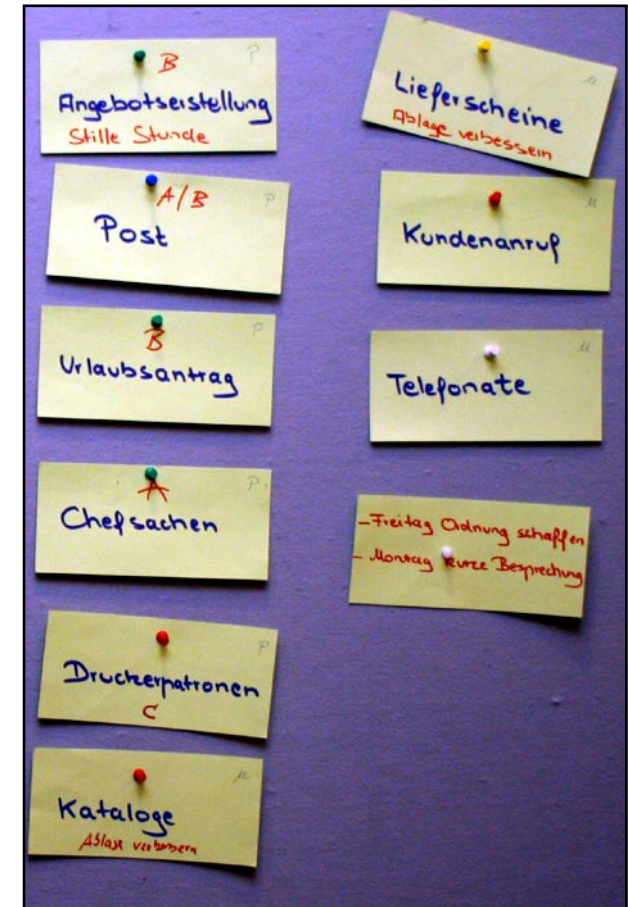 B P
Angebotserstellung
Stille Stunde
A/B P
Post
P
B
Urlaubsantrag
P
A
Chefsachen
P
Druckerpatronen
C
M
Kataloge
Ablage verbessern
M
Lieferscheine
Ablage verbessern
M
Kundenanruf
M
Telefonate
- Freitag Ordnung schaffen
- Montag kurze Besprechung